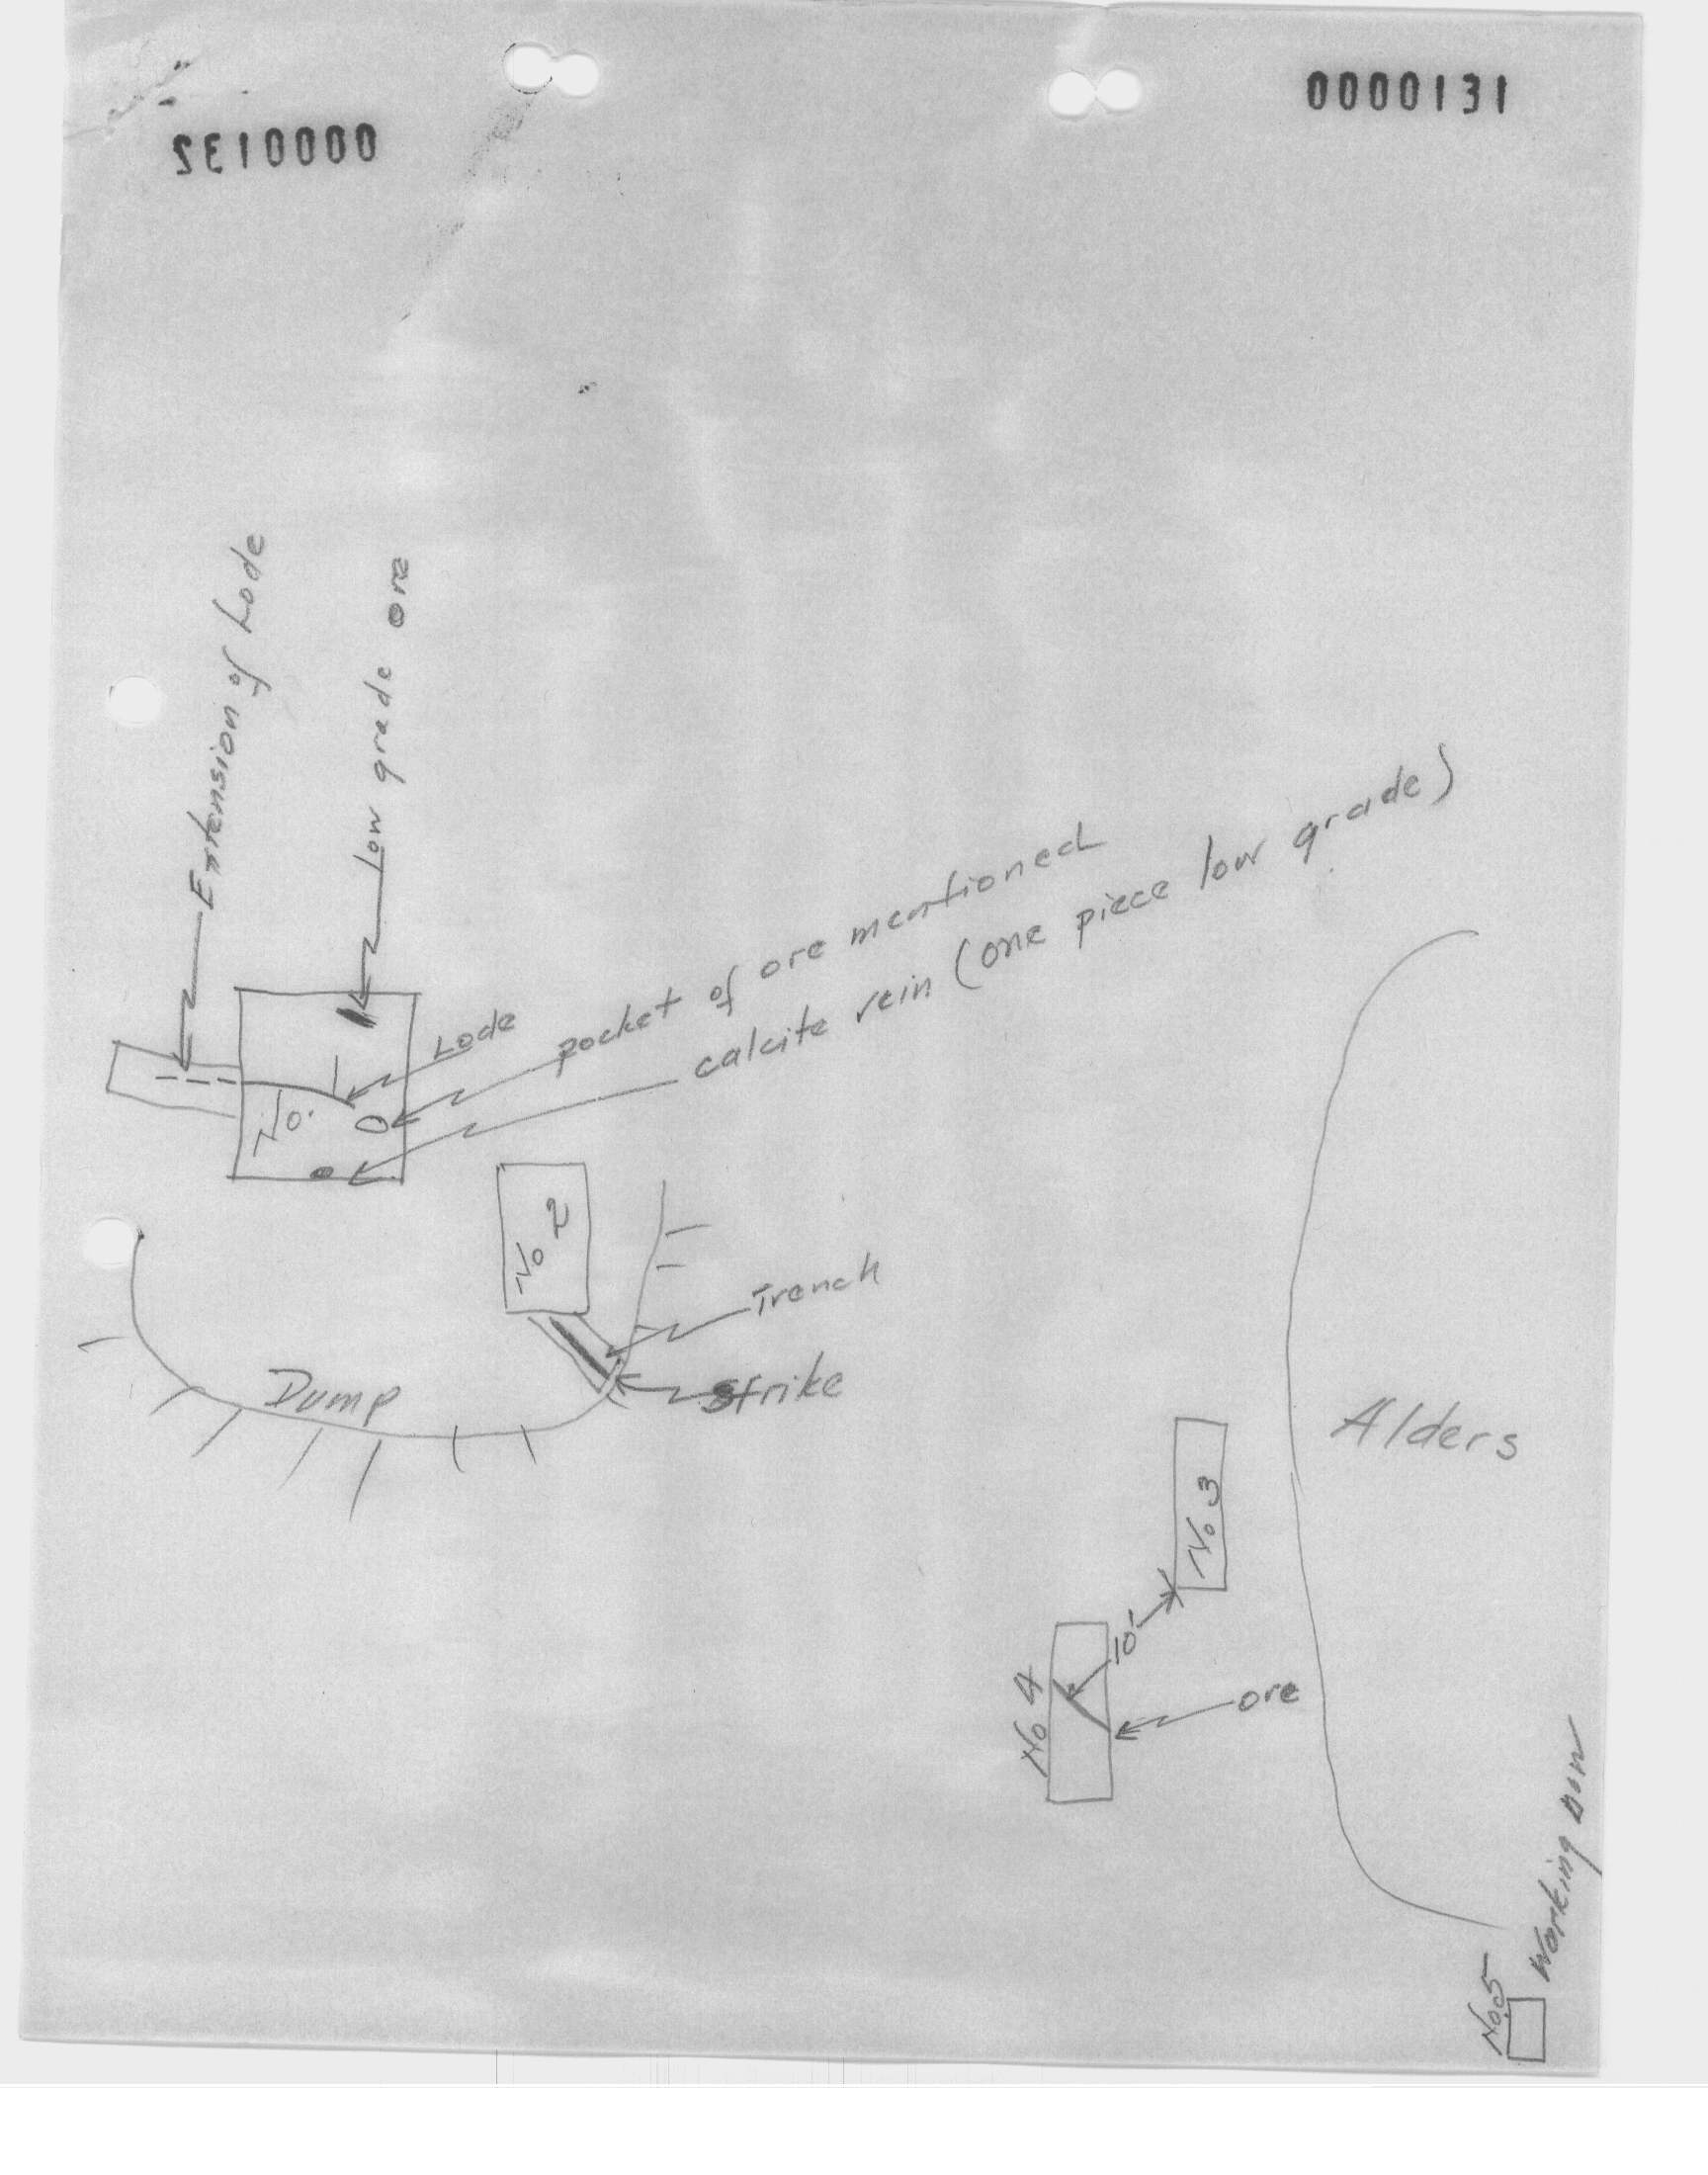 0000131
0000132
Extension of Lode
Low grade ore
Lode
pocket of ore mentioned
calcite vein (one piece low grade)
No. 1
No 2
Trench
Strike
Dump
Alders
No 3
10'
No 4
ore
No. 5
Working now